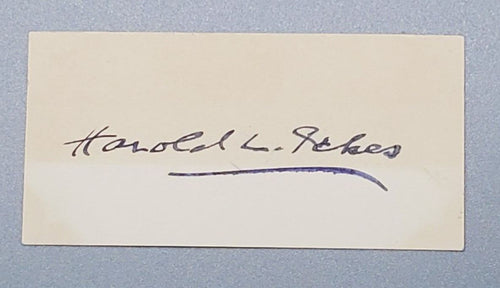 Harold L. Ickes